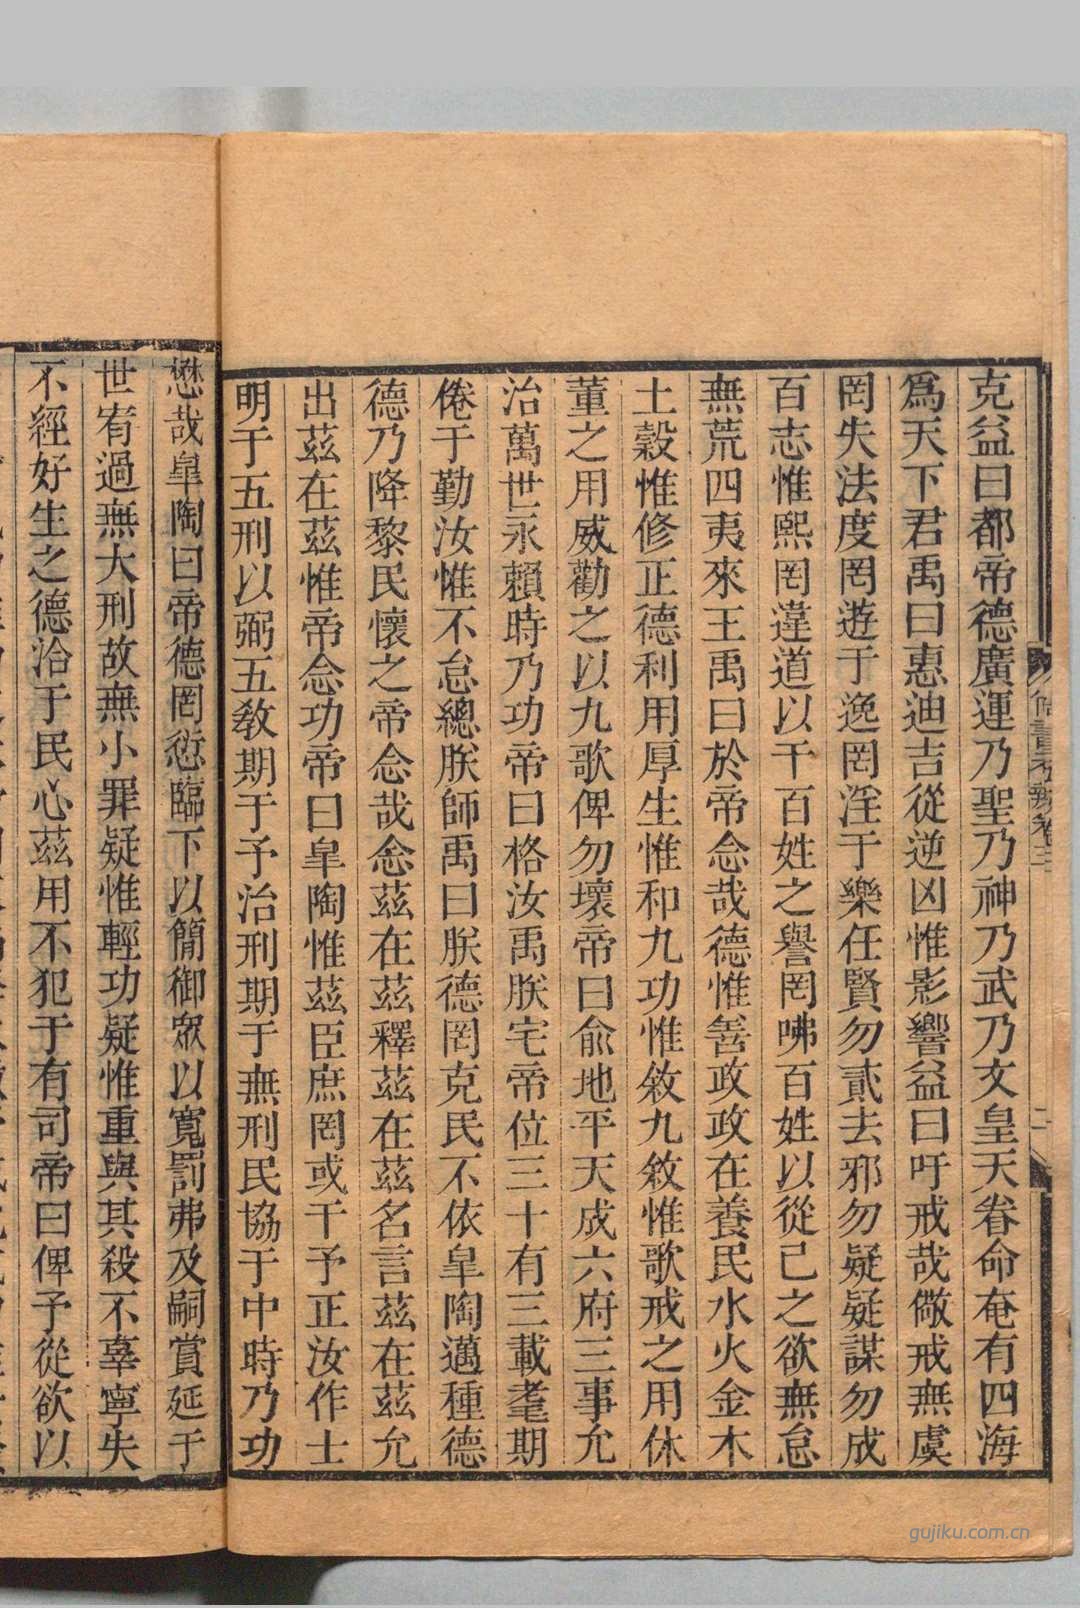 克益曰都帝德廣運乃聖乃神乃武乃文皇天眷命奄有四海
爲天下君禹曰惠迪吉從逆凶惟影響益曰吁戒哉儆戒無虞
罔失法度罔遊于逸罔淫于樂任賢勿貳去邪勿疑疑謀勿成
百志惟熙罔違道以干百姓之譽罔咈百姓以從己之欲無怠
無荒四夷來王禹曰於帝念哉德惟善政政在養民水火金木
土穀惟修正德利用厚生惟和九功惟敘九敘惟歌戒之用休
董之用威勸之以九歌俾勿壞帝曰俞地平天成六府三事允
治萬世永賴時乃功帝曰格汝禹朕宅帝位三十有三載耄期
倦于勤汝惟不怠總朕師禹曰朕德罔克民不依皐陶邁種德
德乃降黎民懷之帝念哉念茲在茲釋茲在茲名言茲在茲允
出茲在茲惟帝念功帝曰皐陶惟茲臣庶罔或干予正汝作士
明于五刑以弼五敎期于予治刑期于無刑民協于中時乃功
懋哉皐陶曰帝德罔愆臨下以簡御眾以寬罰弗及嗣賞延于
世宥過無大刑故無小罪疑惟輕功疑惟重與其殺不辜寧失
不經好生之德洽于民心茲用不犯于有司帝曰俾予從欲以
gujiku.com.cn